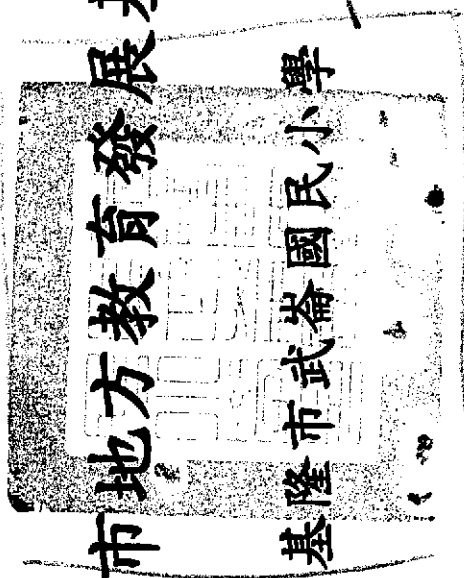 市地方教育發展基
基隆市武崙國民小學